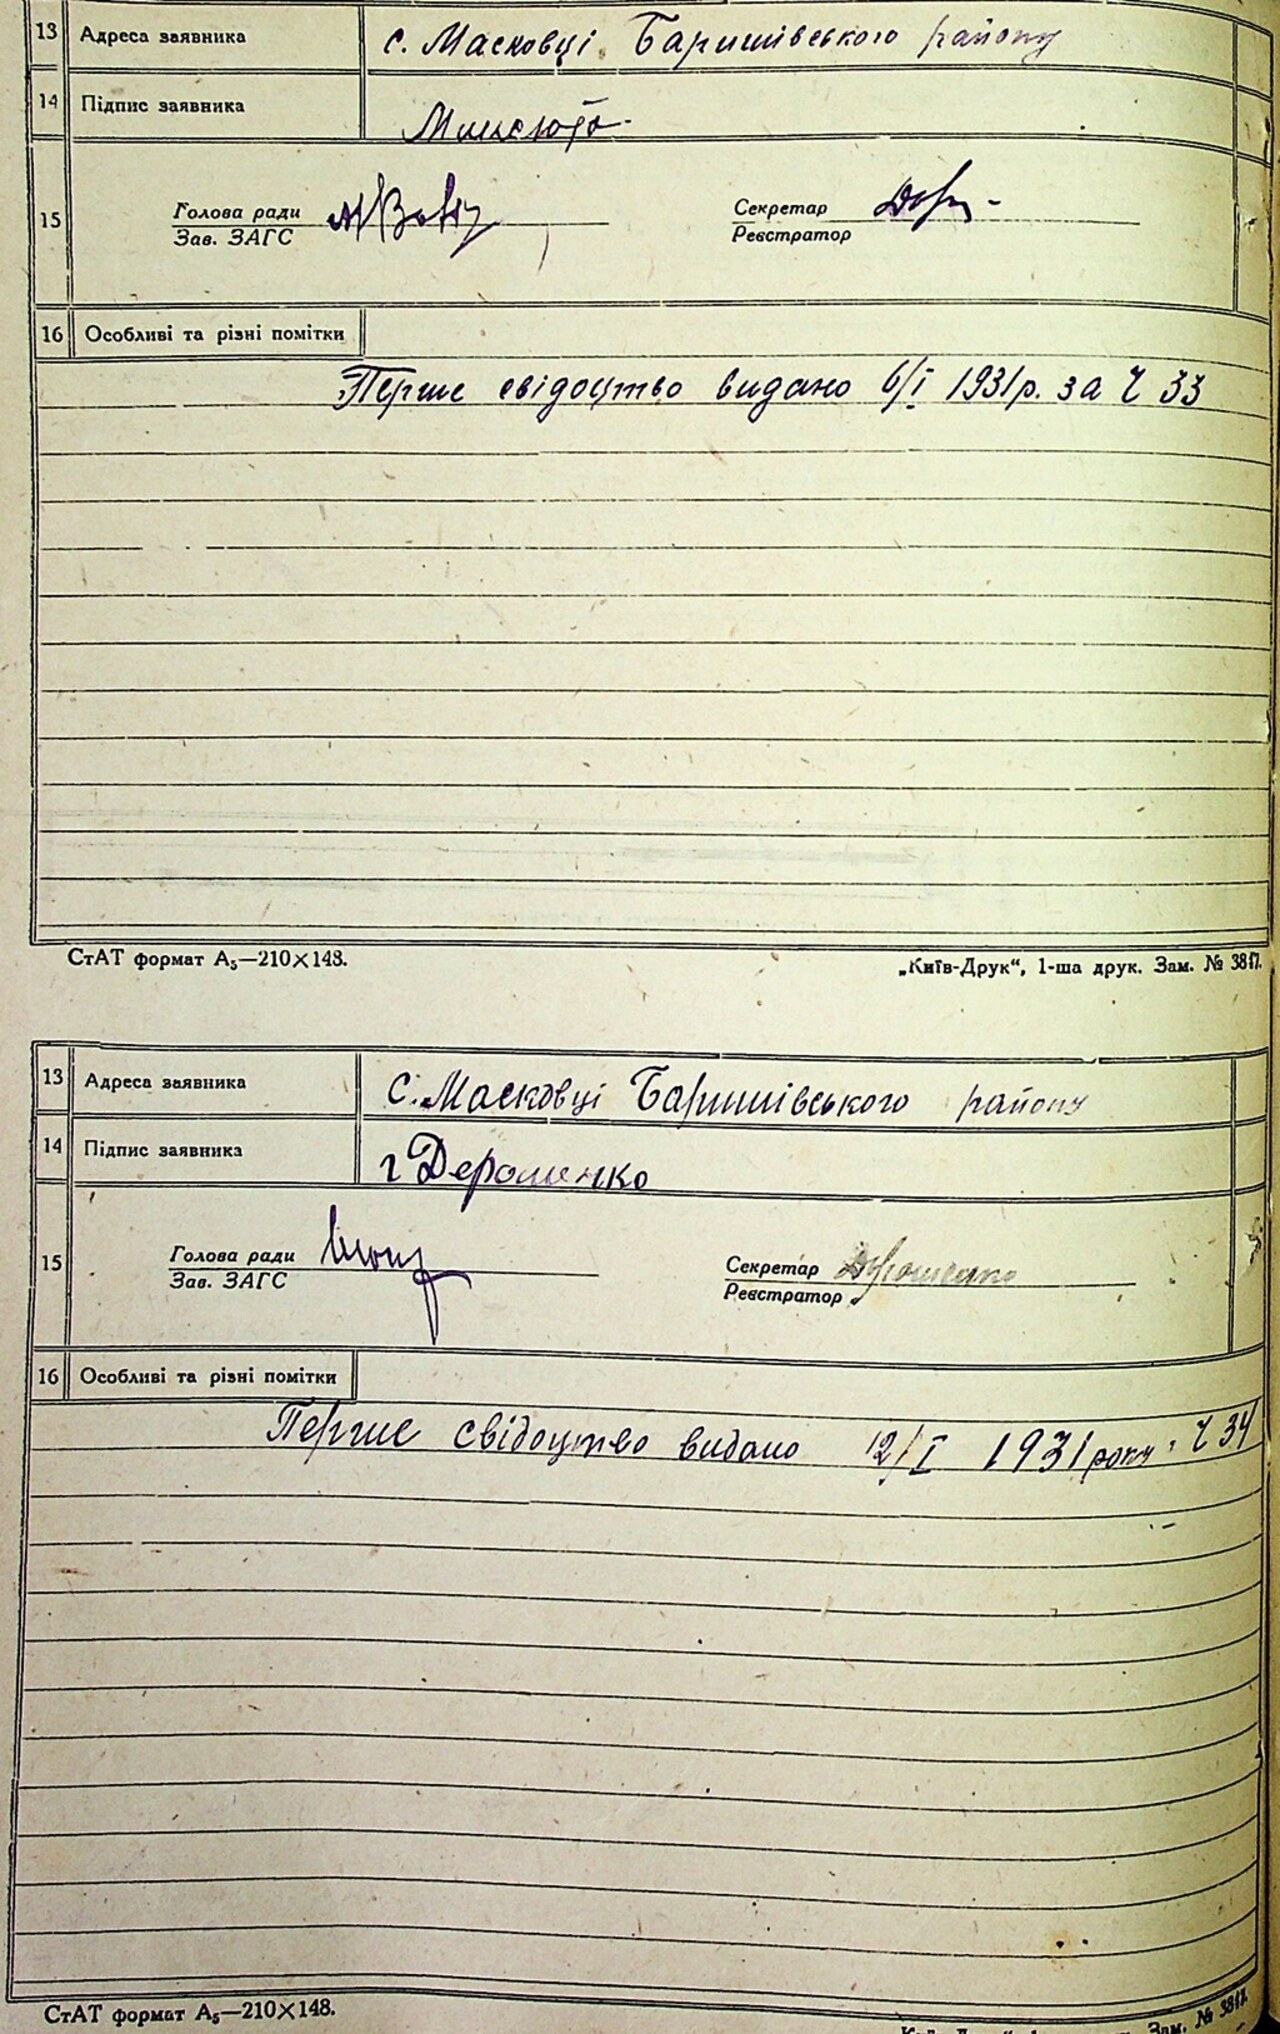 13 Адреса заявника с. Масковці Баришівського району
14 Підпис заявника
15 Голова ради Секретар
Зав. ЗАГС Реєстратор
16 Особливі та різні помітки
Перше свідоцтво видано 6/I 1931р. за Ч 33
СтАТ формат А₅—210×148. „Київ-Друк“, 1-ша друк. Зам. № 3817.
13 Адреса заявника С. Масковці Баришівського району
14 Підпис заявника г Дерошенко
15 Голова ради Секретар
Зав. ЗАГС Реєстратор
16 Особливі та різні помітки
Перше свідоцтво видано 12/I 1931 року Ч 34
СтАТ формат А₅—210×148. Зам. № 3817.